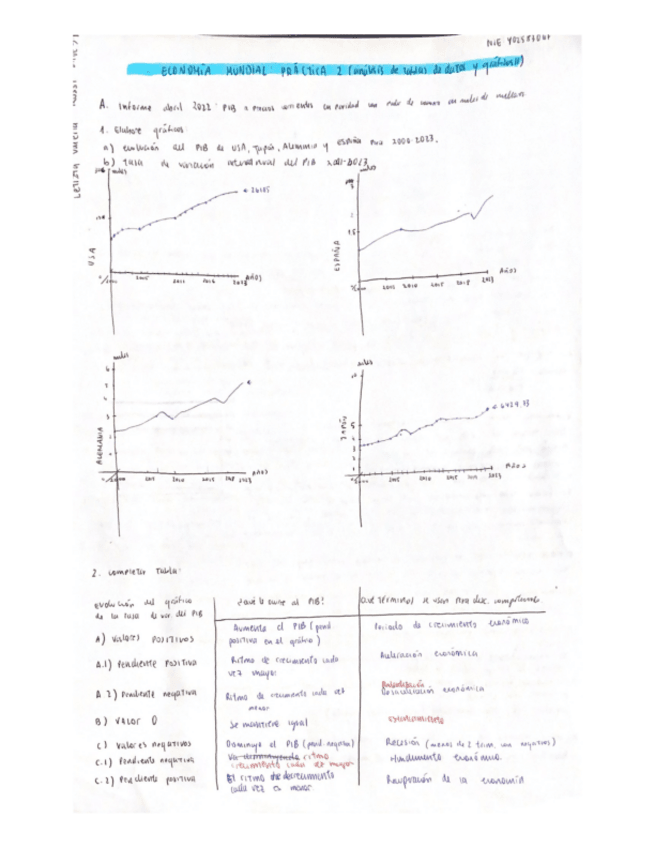 NIE
ECONOMÍA MUNDIAL: PRÁCTICA 2 (análisis de tablas de datos y gráficos)
A. Informe abril 2022: PIB a precios corrientes en paridad
1. Elabore gráficos:
a) evolución del PIB de USA, Japón, Alemania y España para 2000-2023.
b) Tasa de variación interanual del PIB 2001-2023
USA
miles
AÑOS
2023
ESPAÑA
miles
1.5
AÑOS
2023
ALEMANIA
miles
AÑOS
2023
JAPÓN
miles
5
AÑOS
2023
2. Completar Tabla:
evolución del gráfico de la tasa de var del PIB
¿Qué le ocurre al PIB?
Qué términos se usan para desc. comportamiento
A) Valores POSITIVOS
Aumenta el PIB (pend positiva en el gráfico)
Periodo de crecimiento económico
A.1) Pendiente Positiva
Ritmo de crecimiento cada vez mayor
Aceleración económica
A 2) Pendiente negativa
Ritmo de crecimiento cada vez menor
Desaceleración económica
B) VALOR 0
Se mantiene igual
estancamiento
C) Valores negativos
Disminuye el PIB (pend. negativa)
Recesión (menos de 2 trim. con negativos)
C.1) Pendiente negativa
ritmo crecimiento cada vez mayor
Hundimiento económico.
C.2) Pendiente positiva
El ritmo de decrecimiento cada vez es menor
Recuperación de la economía